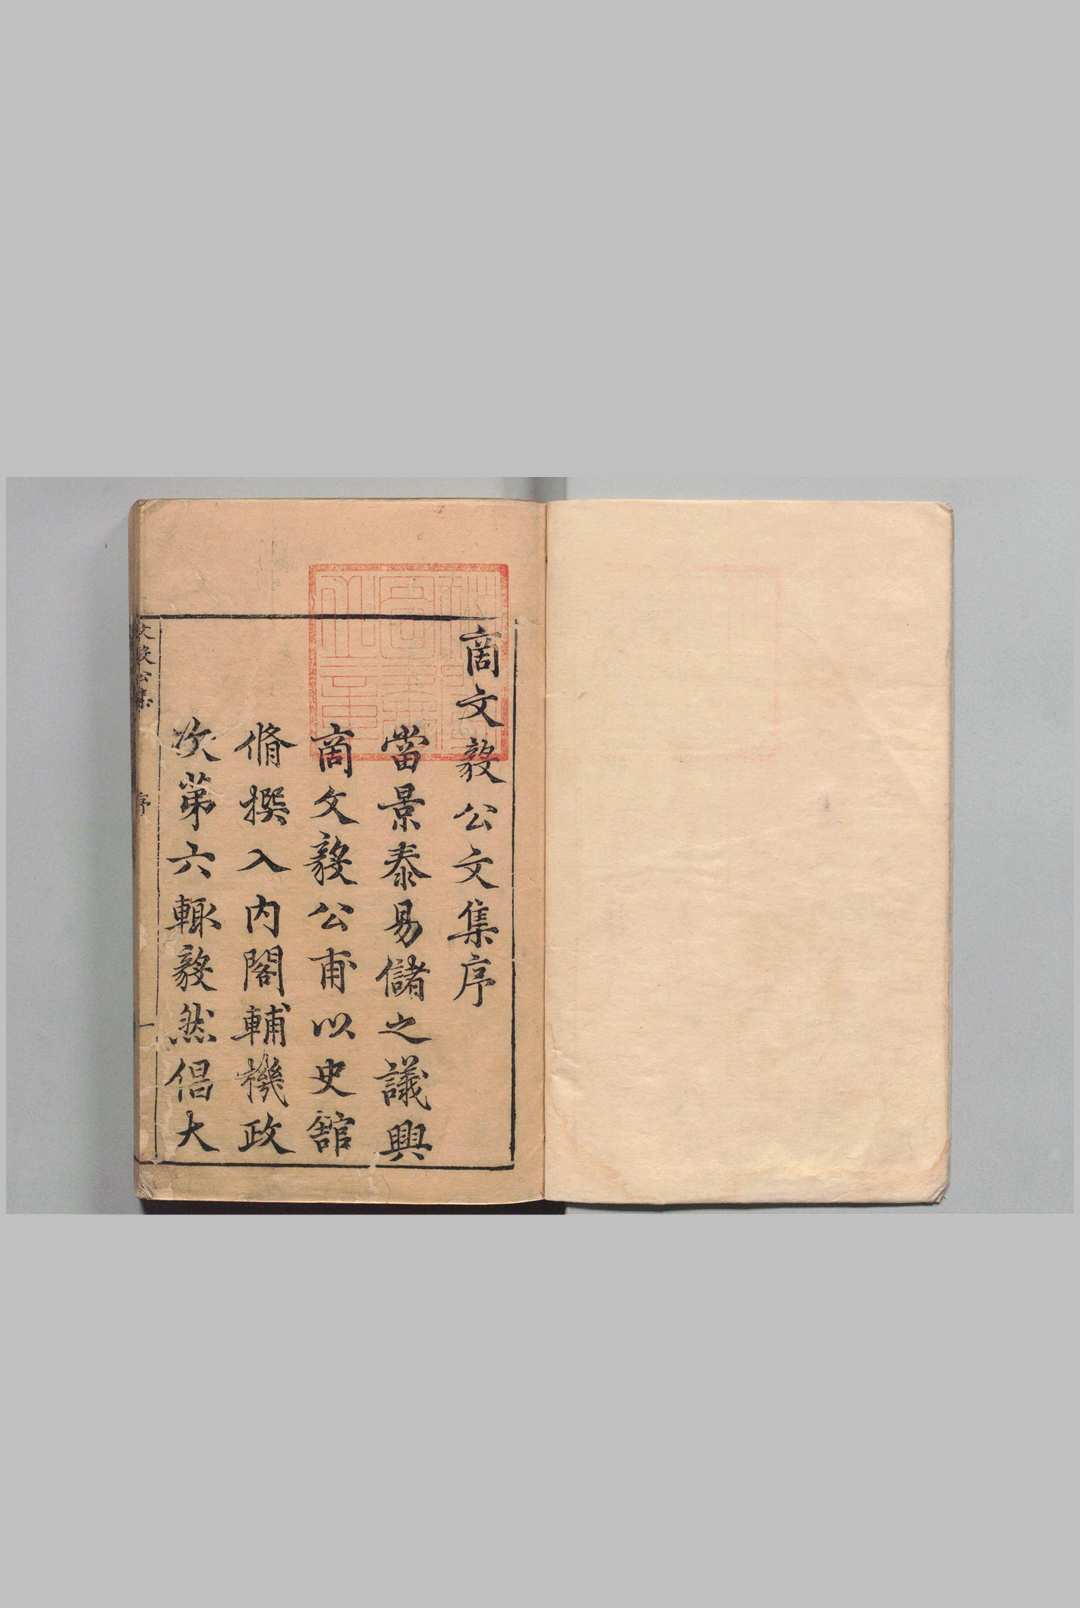 商文毅公文集序
當景泰易儲之議興
商文毅公甫以史館
脩撰入內閣輔機政
次第六輙毅然倡大
文毅公集 序 一